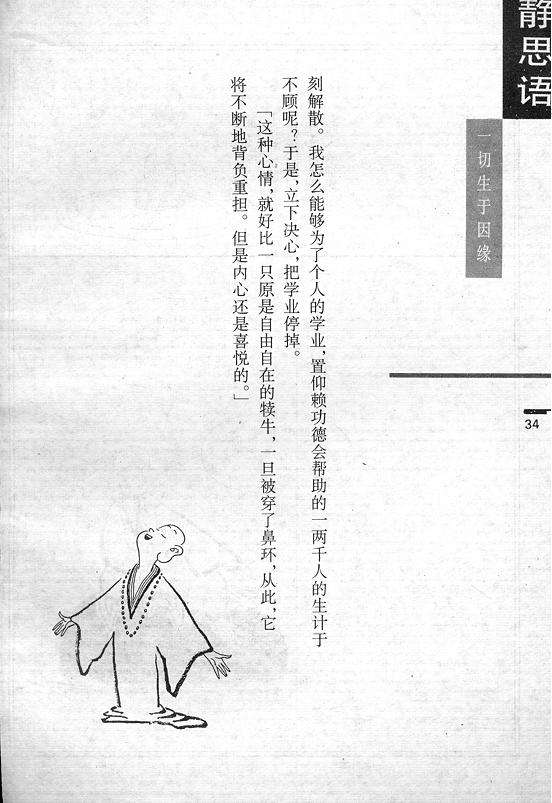 静思语
一切生于因缘
34
刻解散。我怎么能够为了个人的学业，置仰赖功德会帮助的一两千人的生计于
不顾呢？于是，立下决心，把学业停掉。
「这种心情，就好比一只原是自由自在的犊牛，一旦被穿了鼻环，从此，它
将不断地背负重担。但是内心还是喜悦的。」